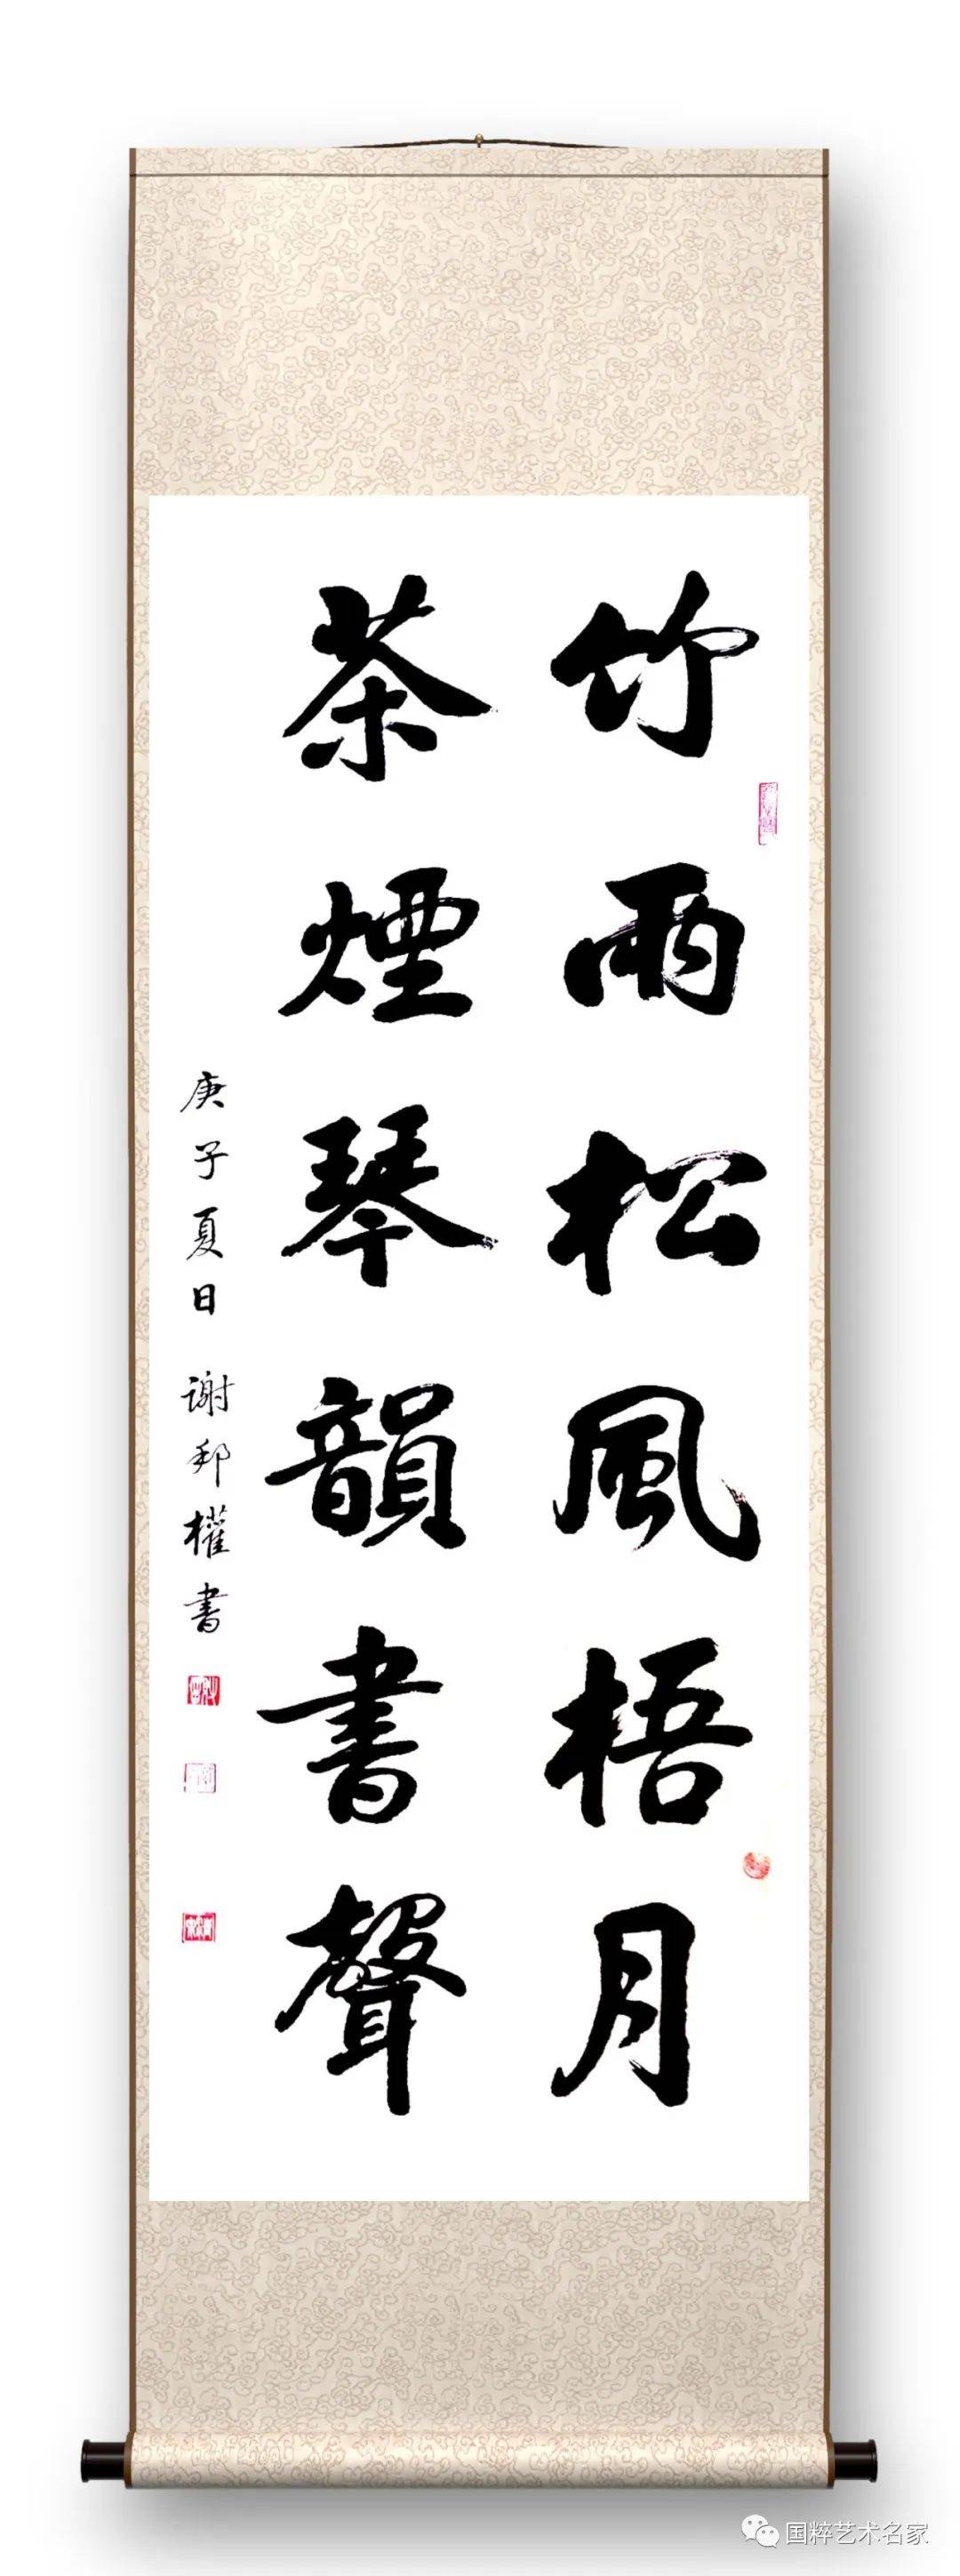 竹雨松風梧月
茶煙琴韻書聲
庚子夏日 谢邦權書
国粹艺术名家